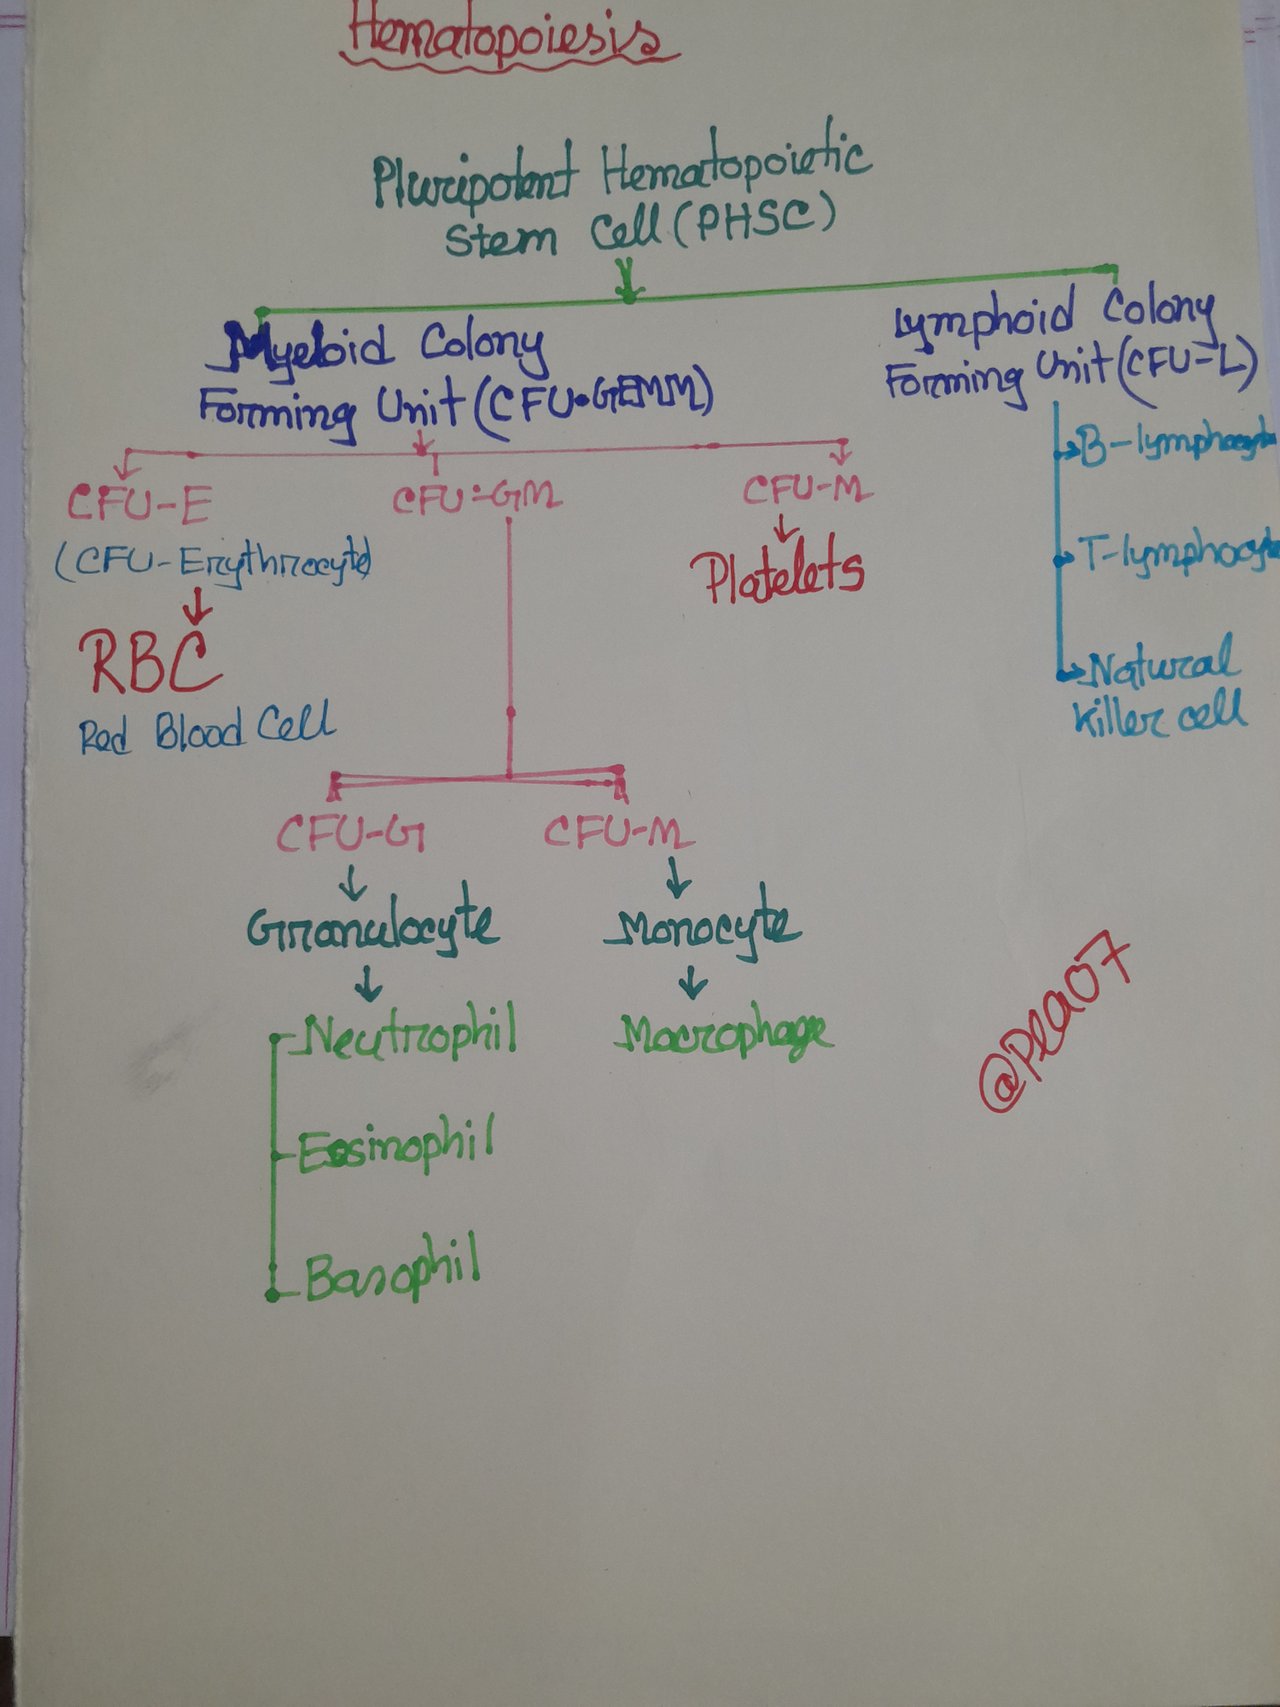 Hematopoiesis
Pluripotent Hematopoietic
Stem Cell (PHSC)
Myeloid Colony
Forming Unit (CFU-GEMM)
Lymphoid Colony
Forming Unit (CFU-L)
CFU-E
CFU-GM
CFU-M
(CFU-Erythrocyte)
Platelets
RBC
Red Blood Cell
B-lymphocyte
T-lymphocyte
Natural
Killer cell
CFU-G
CFU-M
Granulocyte
Monocyte
Neutrophil
Macrophage
Eosinophil
Basophil